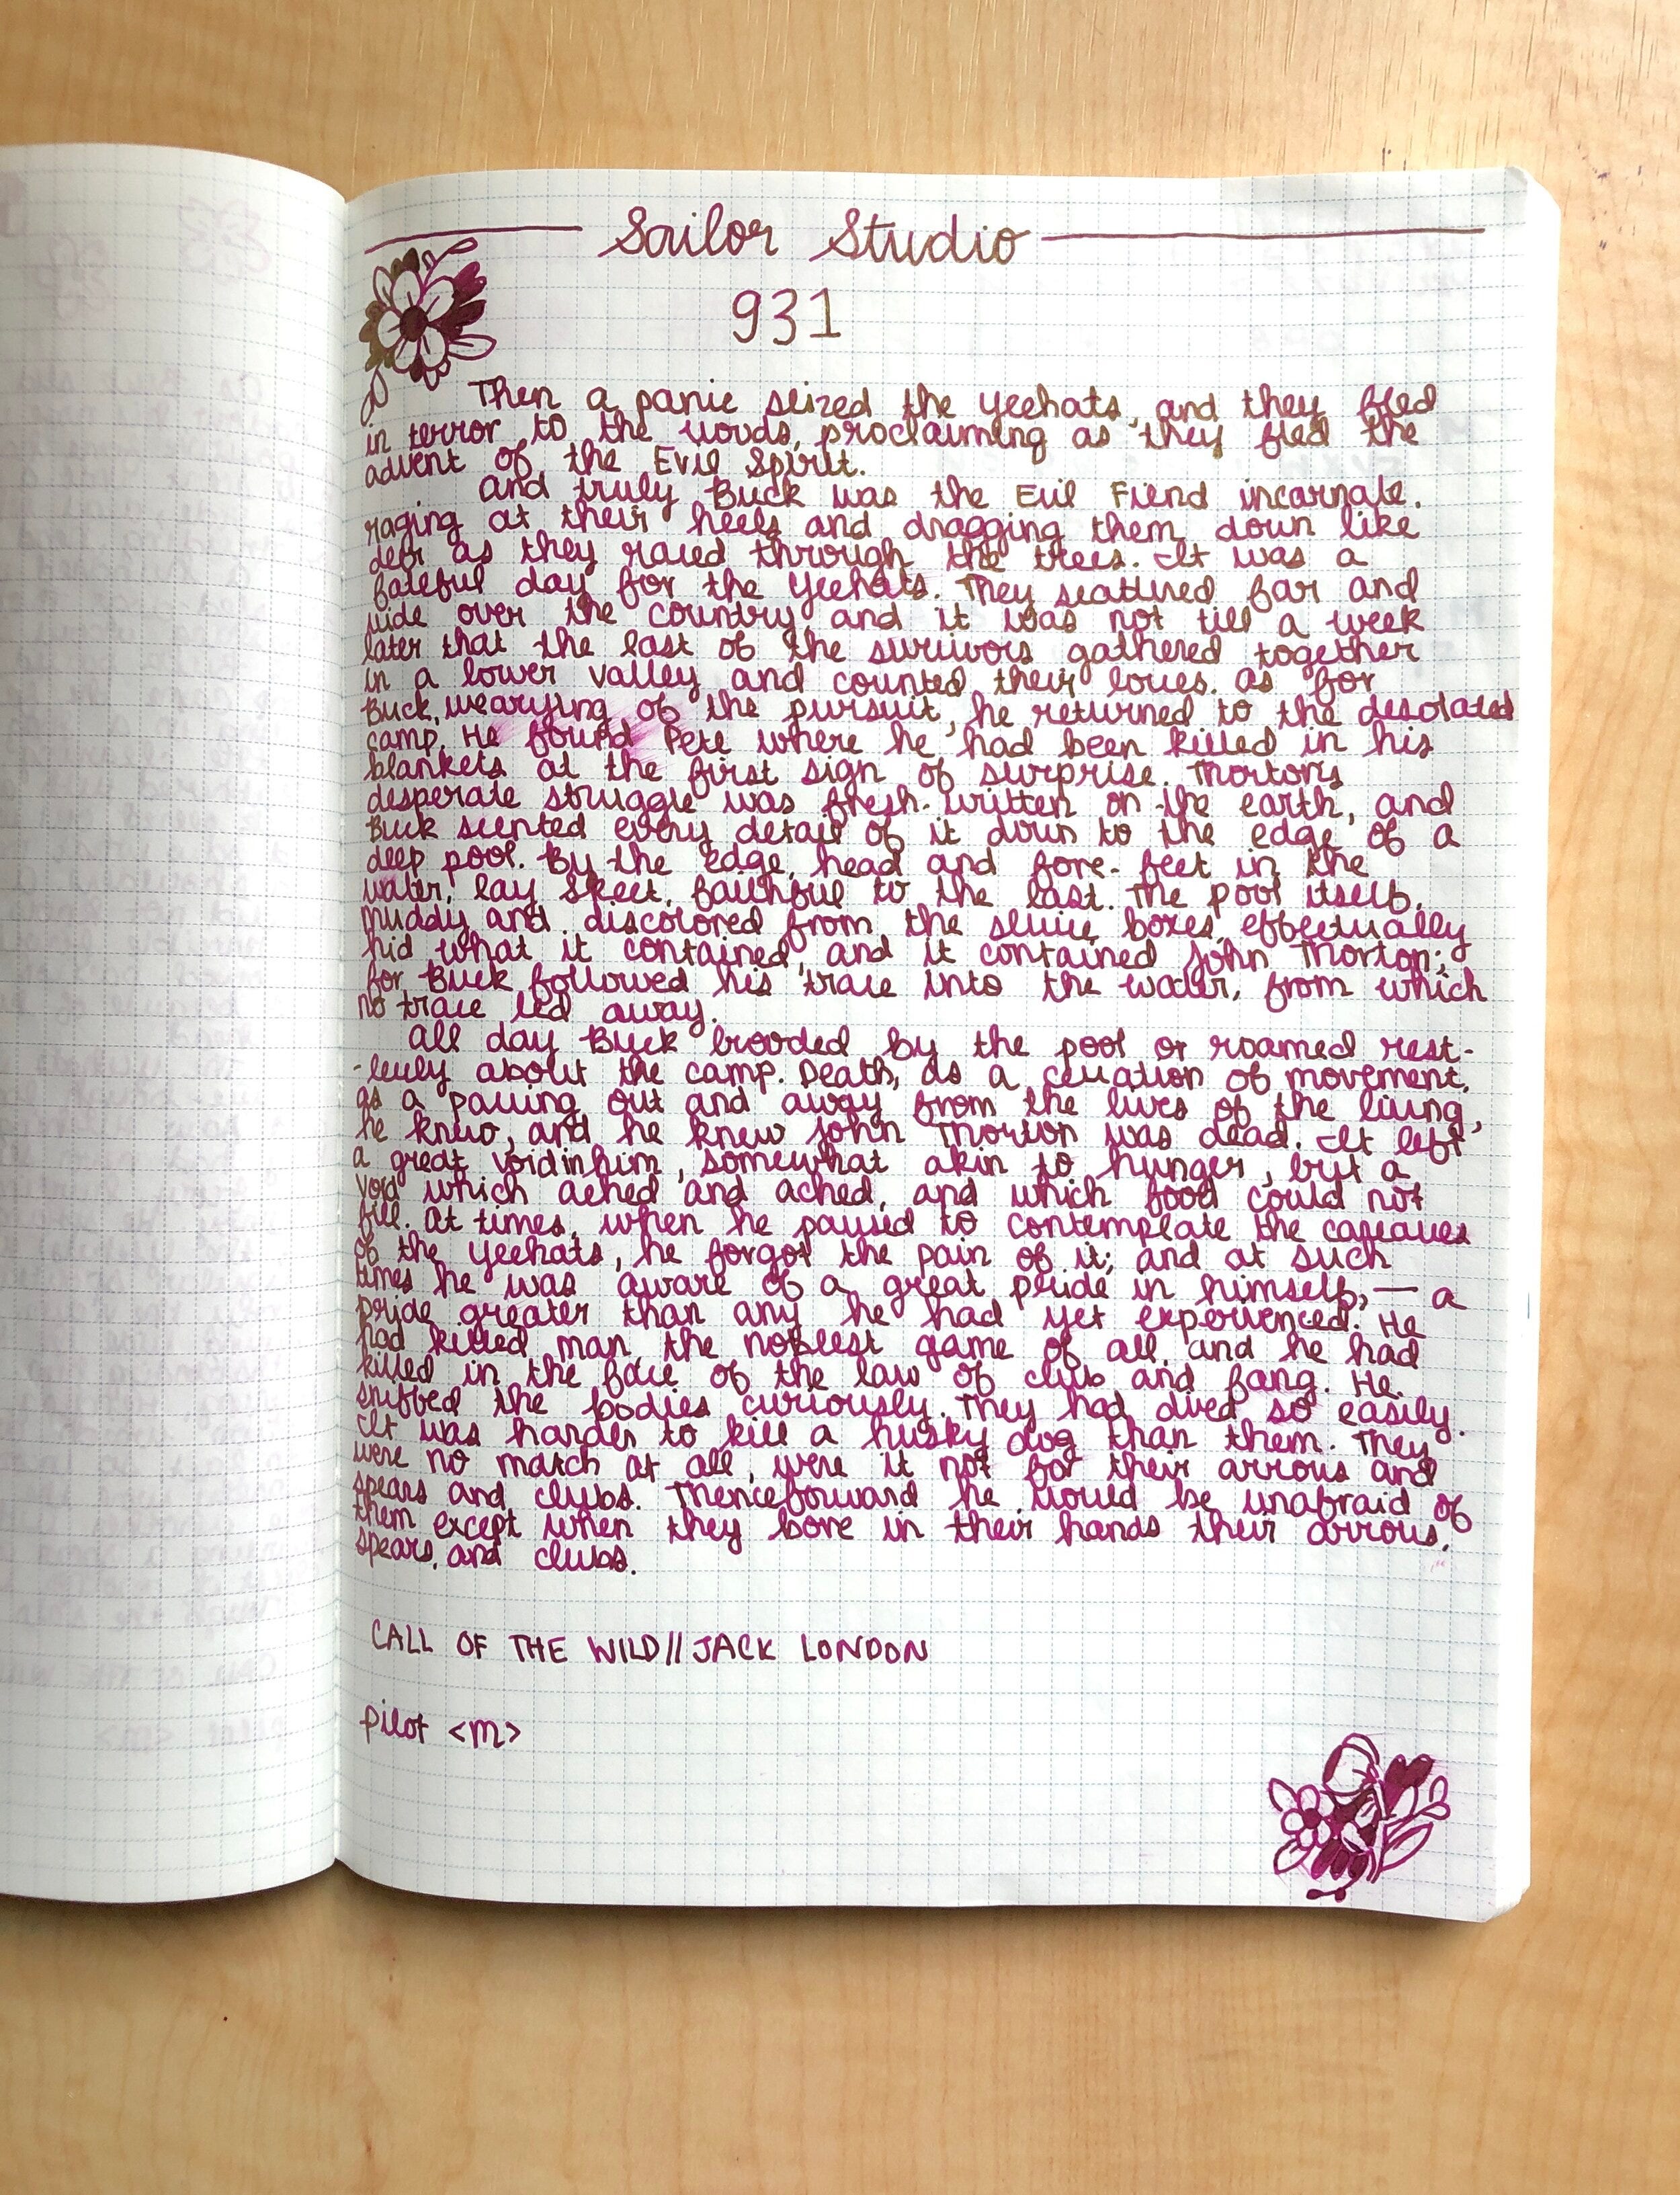 Sailor Studio
931
Then a panic seized the Yeehats, and they fled
in terror to the woods, proclaiming as they fled the
advent of the Evil Spirit.
and truly Buck was the Evil Fiend incarnate,
raging at their heels and dragging them down like
deer as they raced through the trees. It was a
fateful day for the Yeehats. They scattered far and
wide over the country and it was not till a week
later that the last of the survivors gathered together
in a lower valley and counted their losses. As for
Buck, wearying of the pursuit, he returned to the desolated
camp. He found Pete where he had been killed in his
blankets at the first sign of surprise. Thorton's
desperate struggle was fresh-written on the earth, and
Buck scented every detail of it down to the edge of a
deep pool. By the edge, head and fore-feet in the
water, lay Skeet, faithful to the last. The pool itself,
muddy and discolored from the sluice boxes, effectually
hid what it contained, and it contained John Thorton;
for Buck followed his trace into the water, from which
no trace led away.
All day Buck brooded by the pool or roamed rest-
-lessly about the camp. Death, as a cessation of movement,
as a passing out and away from the lives of the living,
he knew, and he knew John Thorton was dead. It left
a great void in him, somewhat akin to hunger, but a
void which ached and ached, and which food could not
fill. At times, when he paused to contemplate the carcasses
of the Yeehats, he forgot the pain of it; and at such
times he was aware of a great pride in himself, — a
pride greater than any he had yet experienced. He
had killed man, the noblest game of all, and he had
killed in the face of the law of club and fang. He
sniffed the bodies curiously. They had died so easily.
It was harder to kill a husky dog than them. They
were no match at all, were it not for their arrows and
spears and clubs. Thenceforward he would be unafraid of
them except when they bore in their hands their arrows,
spears, and clubs.
CALL OF THE WILD // JACK LONDON
pilot <m>